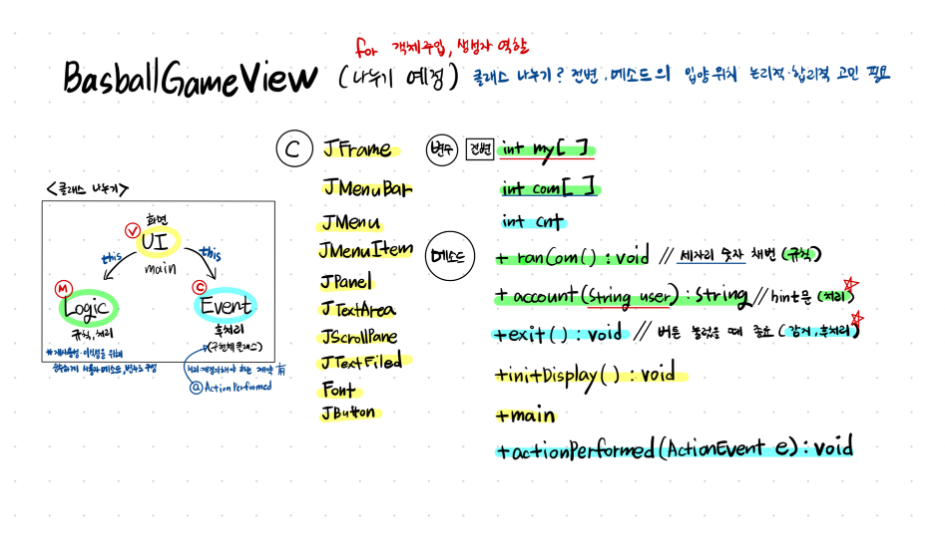 for 객체주입, 생성자 역할
BasballGameView (나누기 예정) 클래스 나누기? 전변·메소드의 입양 위치 논리적·합리적 고민 필요
<클래스 나누기>
화면
V UI
main
this this
M Logic
규칙, 처리
C Event
후처리
(구현체클래스)
@ActionPerformed
C JFrame
JMenuBar
JMenu
JMenuItem
JPanel
JTextArea
JScrollPane
JTextFiled
Font
JButton
변수 전변 int my[ ]
int com[ ]
int cnt
메소드 + ranCom() : void // 세자리 숫자 채번 (규칙)
+ account(String user) : String // hint문 (처리)
+exit() : void // 버튼 눌렀을 때 종료 (감지, 후처리)
+initDisplay() : void
+main
+actionPerformed(ActionEvent e) : void